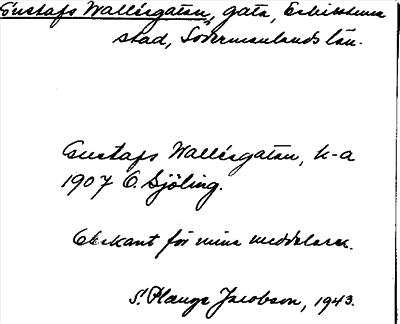 Gustafs Wallésgatan, gata, Eskilstuna
stad, Södermanlands län.
Gustafs Wallésgatan, k-a
1907 O. Sjöling.
Obekant för mina meddelare.
S. Plauge Jacobson, 1943.